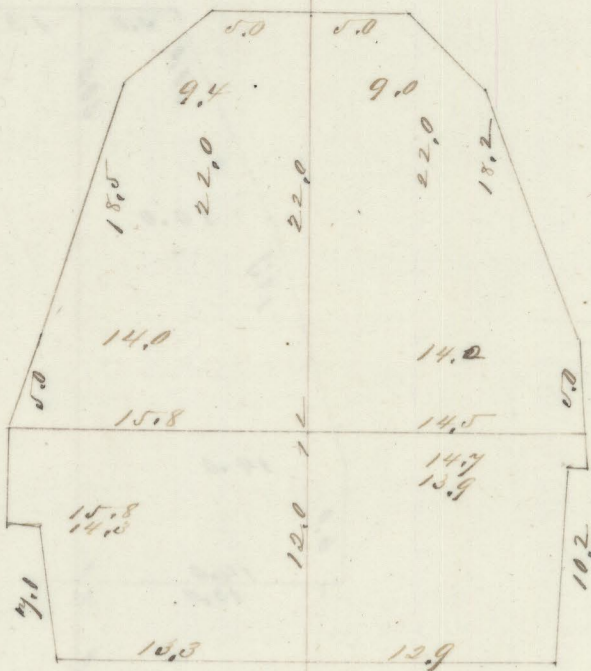 5.0 5.0
9.4 9.0
18.5 22.0 22.0 22.0 18.2
14.0 14.2
5.0 5.0
15.8 14.5
14.7
13.9
15.8
14.3
12.0
7.1 10.2
13.3 12.9